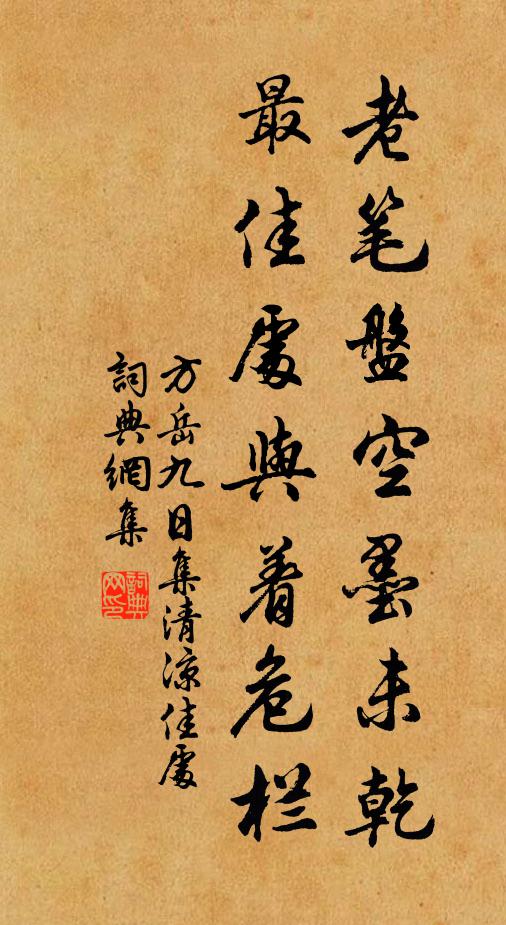 老笔盤空墨未乾
最佳處與着危栏
方岳九日集清凉佳處
詞典網集
詞典网印